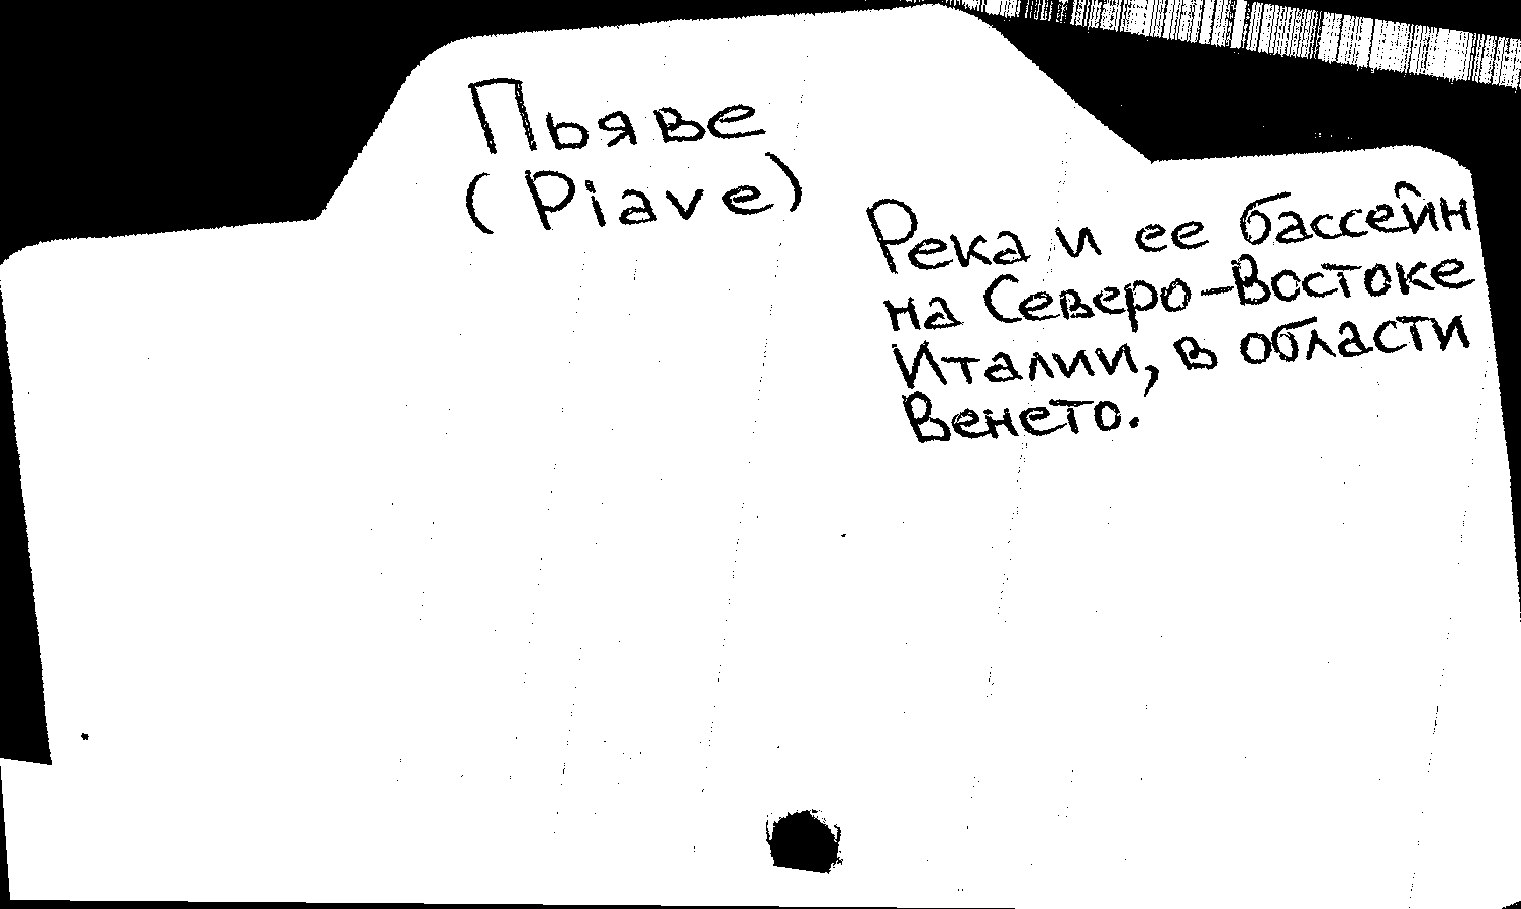 Пьяве
(Piave)
Река и ее бассейн
на Северо-Востоке
Италии, в области
Венето.